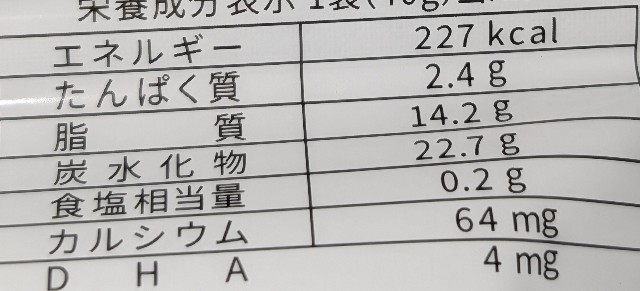 栄養成分表示 1袋(40g)当
エネルギー 227 kcal
たんぱく質 2.4 g
脂質 14.2 g
炭水化物 22.7 g
食塩相当量 0.2 g
カルシウム 64 mg
DHA 4 mg